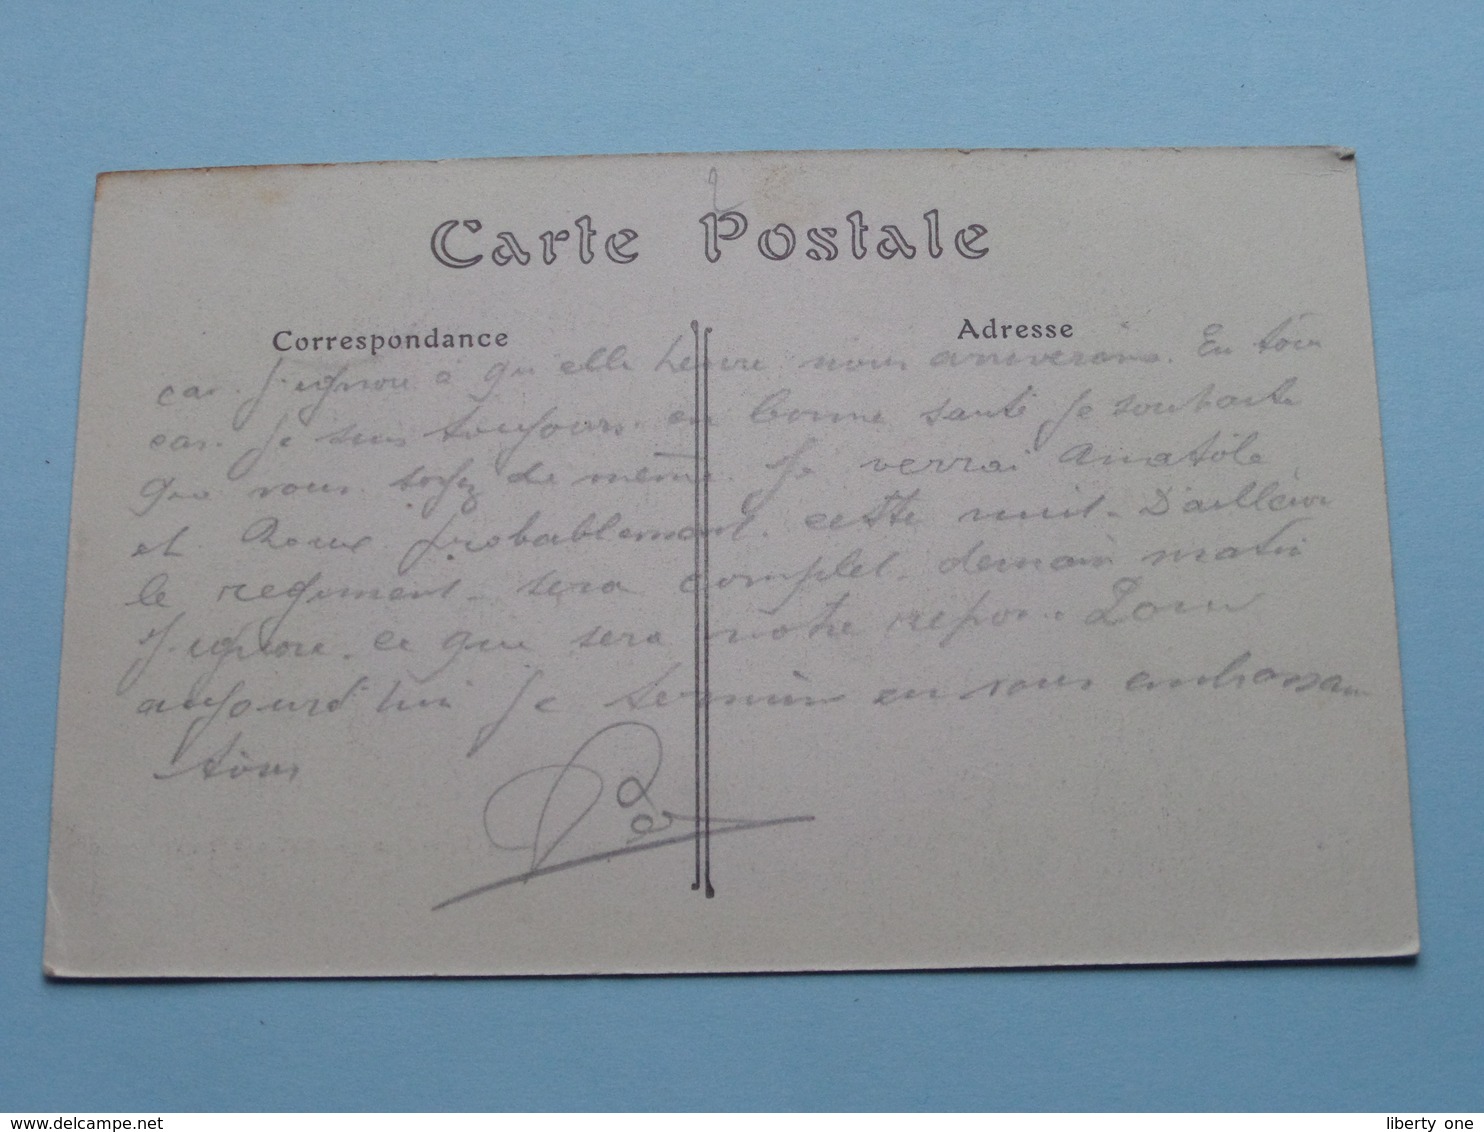 2
Carte Postale
Correspondance
Adresse
car. J'ignore à qu'elle heure nous arriverons. En tous
cas. Je suis toujours en bonne santé je souhaite
que vous soyez de même. Je verrai Anatole
et probablement cette nuit. D'ailleurs
le regiment sera complet demain matin
J'ignore ce que sera notre repos. Pour
aujourd'hui je termine en vous embrassant
tous
www.delcampe.net
liberty_one